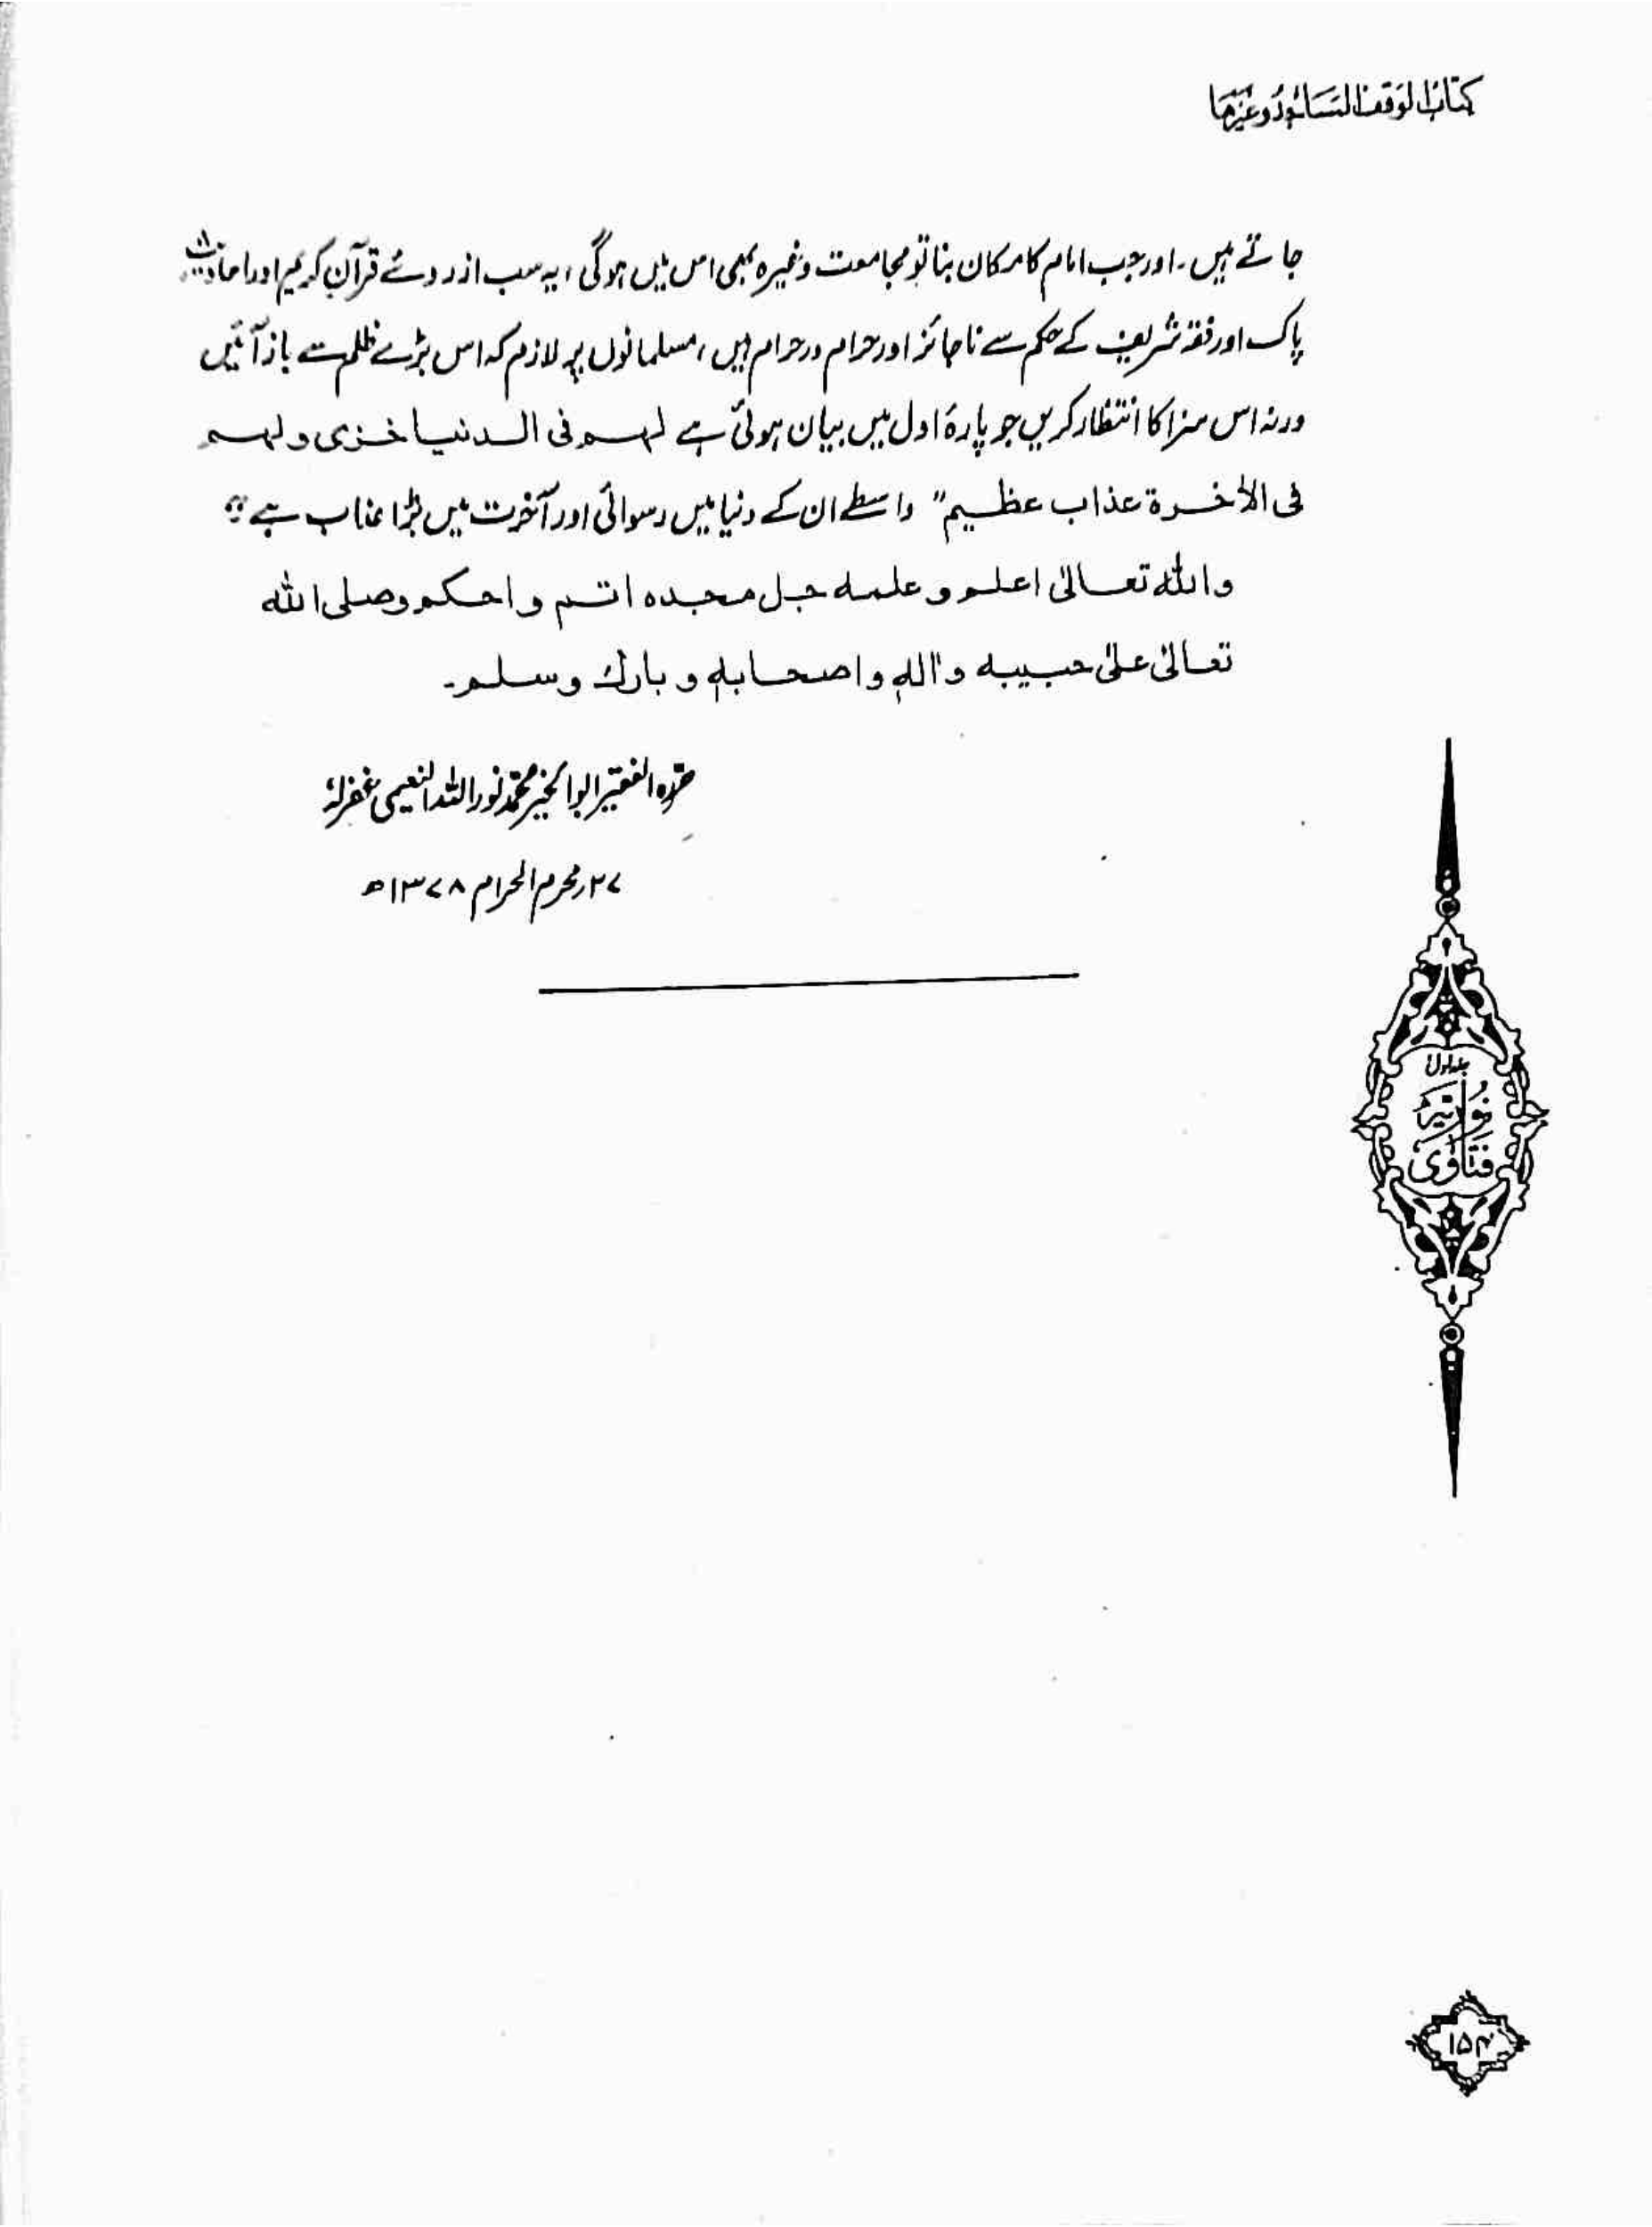 کتاب الوقف المساجد وغیرہما
جاتے ہیں۔ اور جب امام کا مکان بنا تو مجامعت وغیرہ بھی اس میں ہوگی، یہ سب ازروئے قرآن کریم اور احادیث
پاک اور فقہ شریف کے حکم سے ناجائز اور حرام در حرام ہیں، مسلمانوں پر لازم کہ اس بڑے ظلم سے باز آئیں
ورنہ اس سزا کا انتظار کریں جو پارۂ اول میں بیان ہوئی ہے لہم فی الدنیا خزی ولہم
فی الاٰخرة عذاب عظیم" واسطے ان کے دنیا میں رسوائی اور آخرت میں بڑا عذاب ہے"
واللہ تعالیٰ اعلم وعلمہ جل مجدہ اتم واحکم وصلی اللہ
تعالیٰ علیٰ حبیبہ واٰلہٖ واصحابہٖ وبارک وسلم۔
حررہ الفقیر ابوالخیر محمد نور اللہ النعیمی غفرلہٗ
۲۷؍محرم الحرام ۱۳۷۸ھ
جلد اول
نوریہ
فتاوٰی
۱۵۴